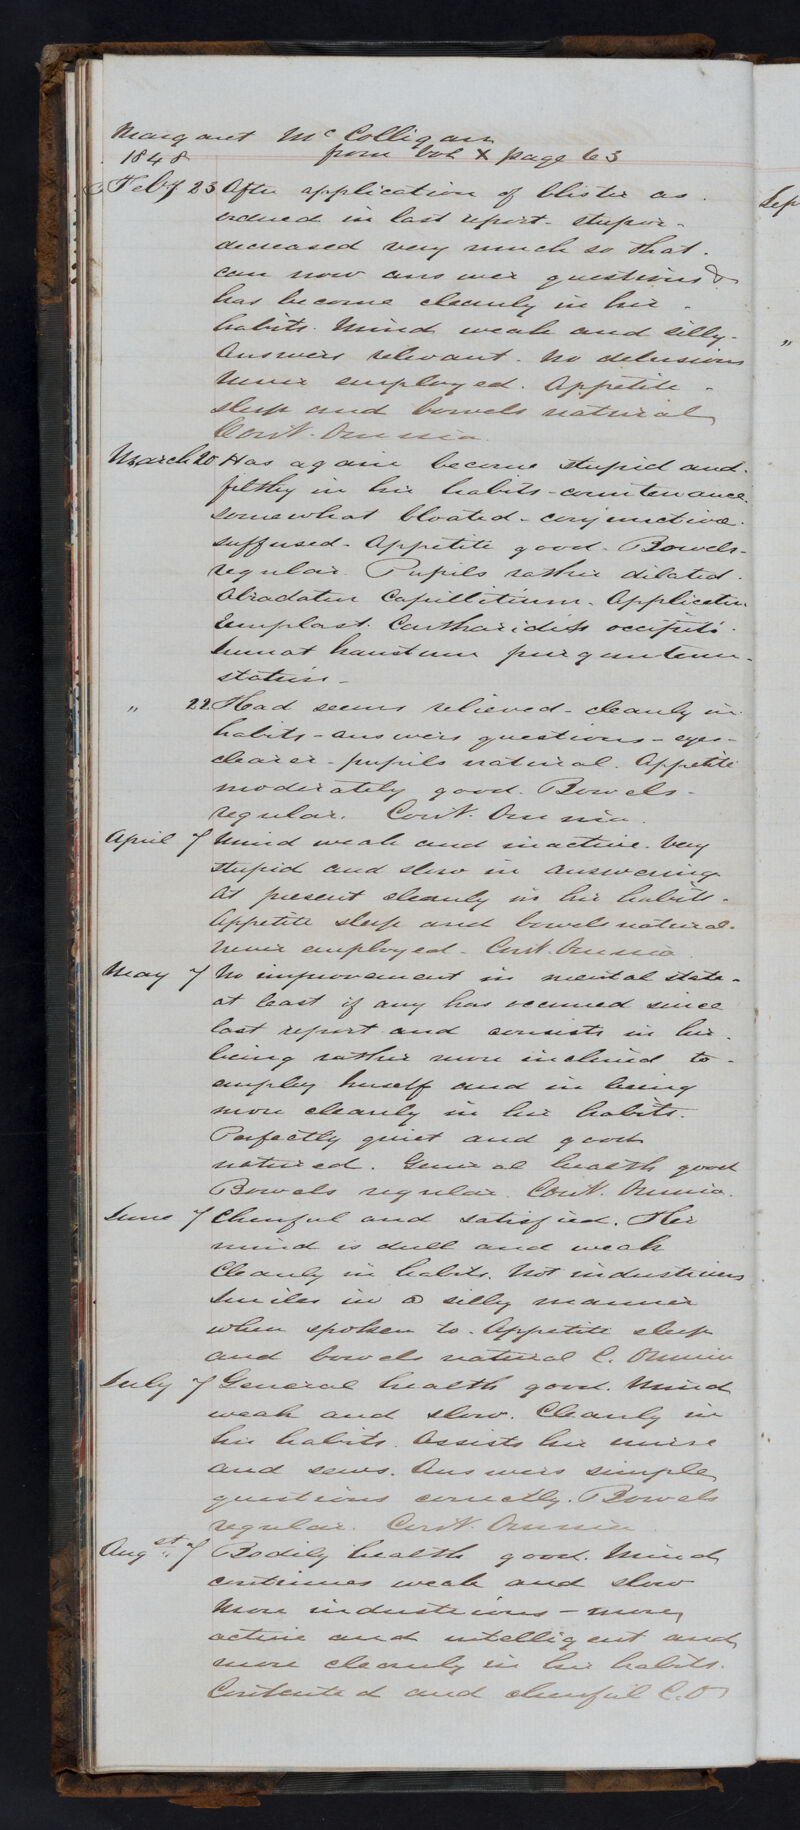 Margaret McColligan
1848 from Vol X page 63
Feby 23 After application of blister as
ordered in last report - stupor -
decreased very much so that -
can now answer questions &
has become cleanly in her -
habits. Mind weak and silly -
Answers relevant - No delusions
Never employed. Appetite -
sleep and bowels natural
Cont. Omnia.
March 20 Has again become stupid and -
filthy in her habits - countenance
somewhat bloated - conjunctiva -
suffused - Appetite good - Bowels -
regular. Pupils rather dilated.
Abradatur Capillitium - Applicetur
Emplast. Cantharidis occipiti -
Sumat haustum purgantem -
statim -
" 22 Head seems relieved - cleanly in
habits - answers questions - eyes -
clearer - pupils natural. Appetite
moderately good. Bowels -
regular. Cont. Omnia.
April 7 Mind weak and inactive. Very
stupid and slow in answering
At present cleanly in her habits -
Appetite sleep and bowels natural -
Never employed - Cont. Omnia.
May 7 No improvement in mental state -
at least if any has occurred since
last report and consists in her -
being rather more inclined to -
employ herself and in being
more cleanly in her habits.
Perfectly quiet and good
natured. General health good
Bowels regular. Cont. Omnia.
June 7 Cheerful and satisfied. Her
mind is dull and weak
Cleanly in habits. Not industrious
Smiles in a silly manner
when spoken to. Appetite sleep
and bowels natural C. Omnia
July 7 General health good. Mind
weak and slow. Cleanly in
her habits. Assists her nurse
and sews. Answers simple
questions correctly. Bowels
regular. Cont. Omnia.
Augst 7 Bodily health good. Mind
continues weak and slow
More industrious - more
active and intelligent and
more cleanly in her habits.
Contented and cheerful C.O
Sep
"